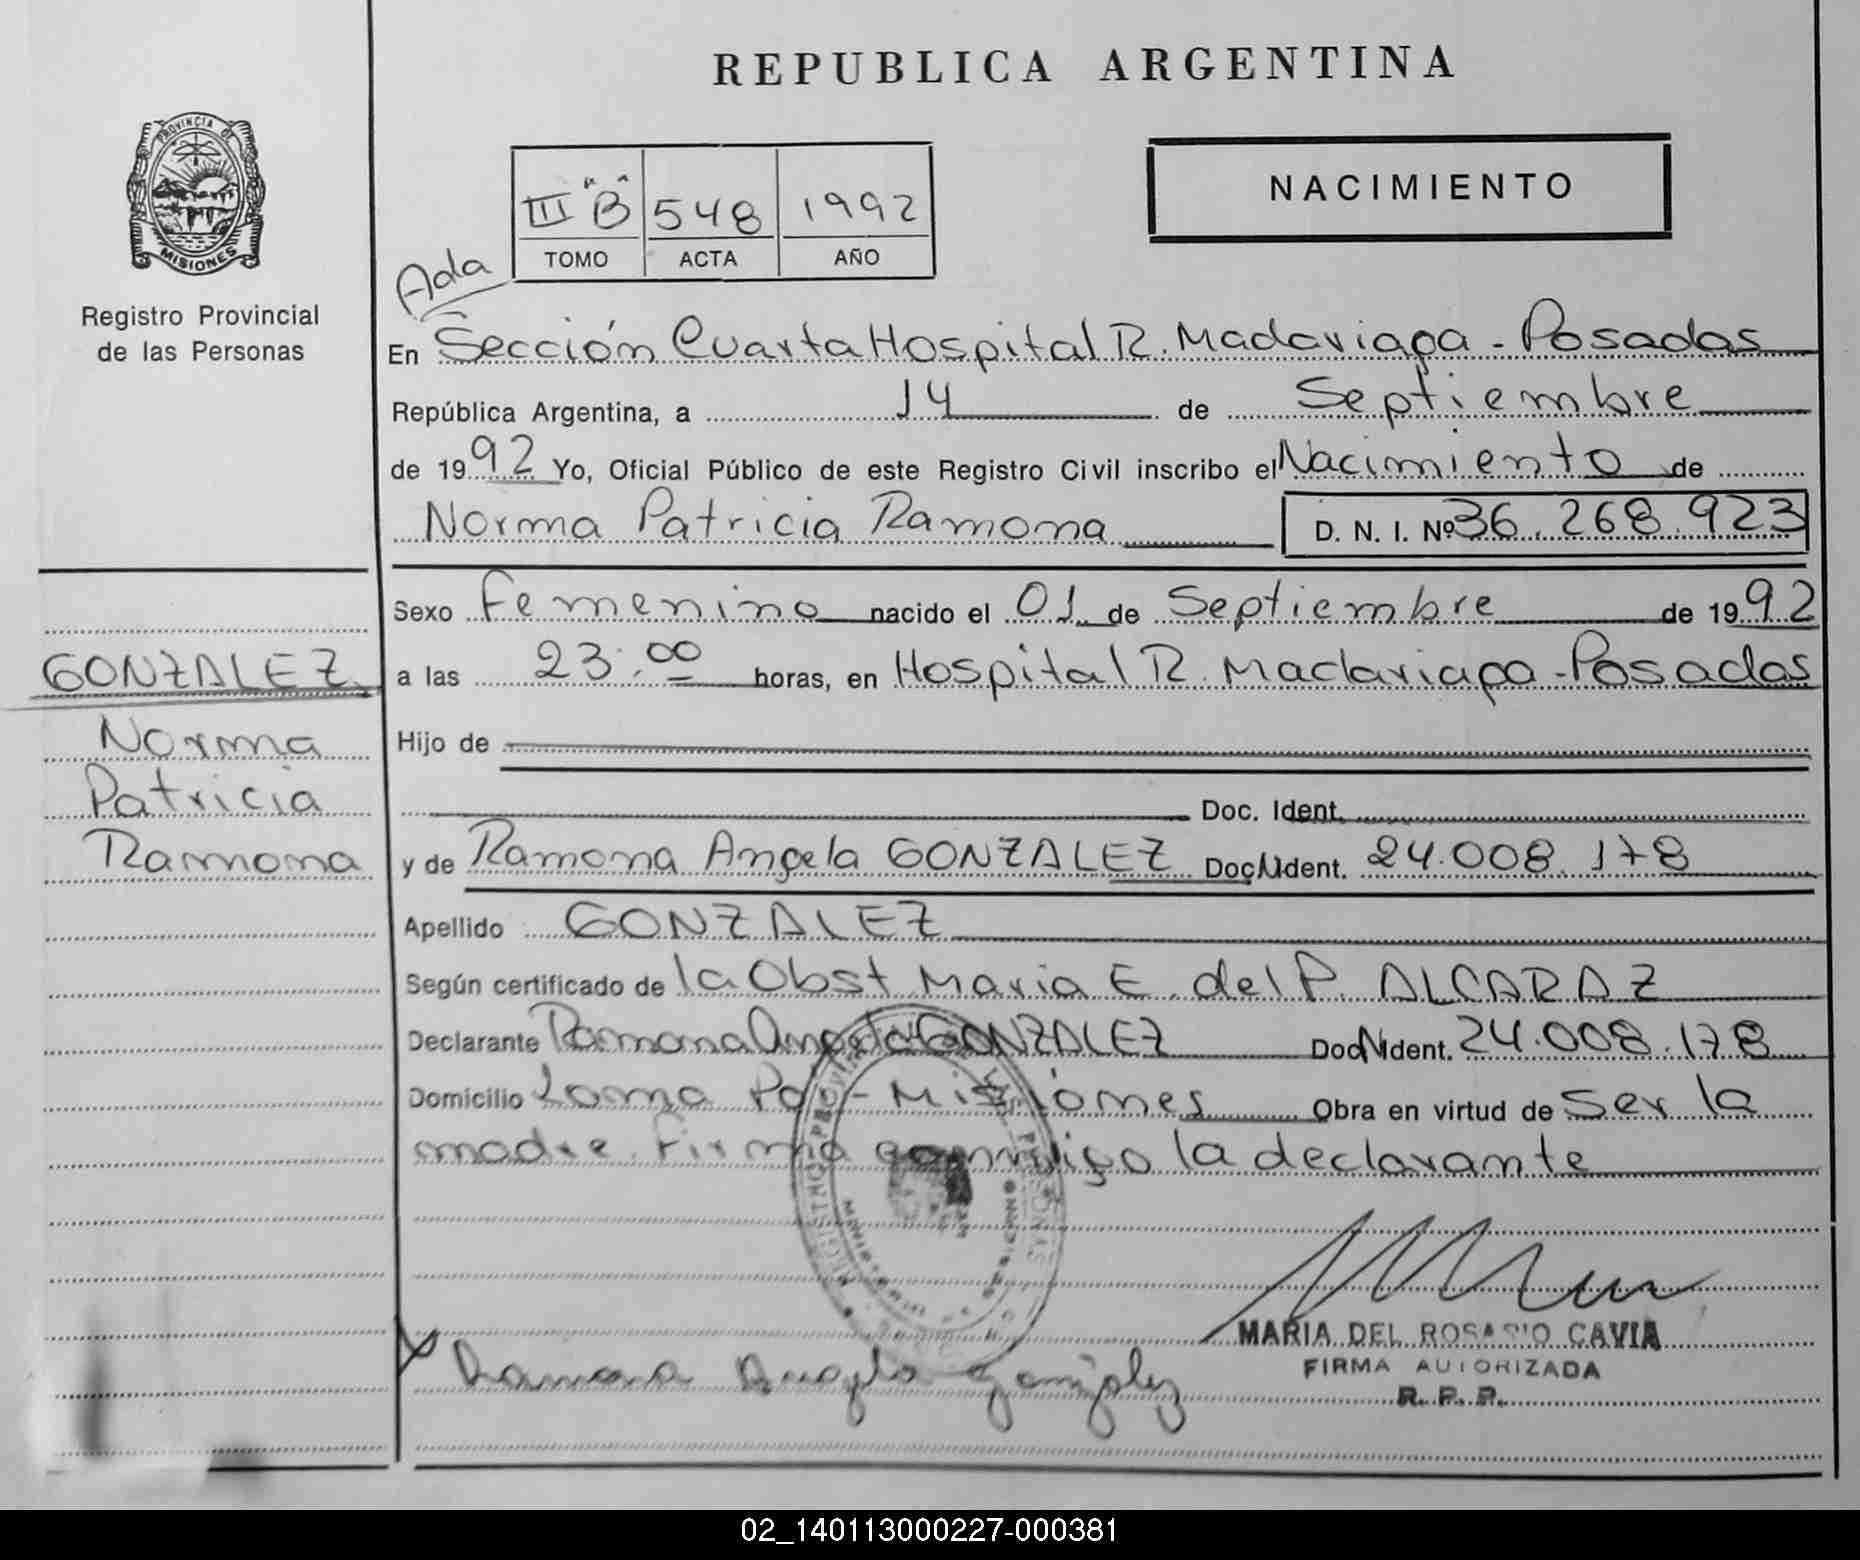 REPUBLICA ARGENTINA
PROVINCIA DE
MISIONES
Registro Provincial
de las Personas
NACIMIENTO
III "B" 548 1992
TOMO ACTA AÑO
Ada
En Sección Cuarta Hospital R. Madariaga - Posadas
República Argentina, a 14 de Septiembre
de 1992 Yo, Oficial Público de este Registro Civil inscribo el Nacimiento de
Norma Patricia Ramona D. N. I. Nº 36.268.923
Sexo Femenino nacido el 01 de Septiembre de 1992
a las 23:00 horas, en Hospital R. Madariaga - Posadas
Hijo de
Doc. Ident.
y de Ramona Angela GONZALEZ Doc. Ident. 24.008.178
Apellido GONZALEZ
Según certificado de la Obst Maria E. del P. ALCARAZ
Declarante Ramona Angela GONZALEZ Doc. Ident. 24.008.178
Domicilio Loma Poi - Misiones Obra en virtud de Ser la
madre. Firma conmigo la declarante
GONZALEZ
Norma
Patricia
Ramona
MARIA DEL ROSARIO CAVIA
FIRMA AUTORIZADA
R. P. P.
Ramona Angela González
02_140113000227-000381